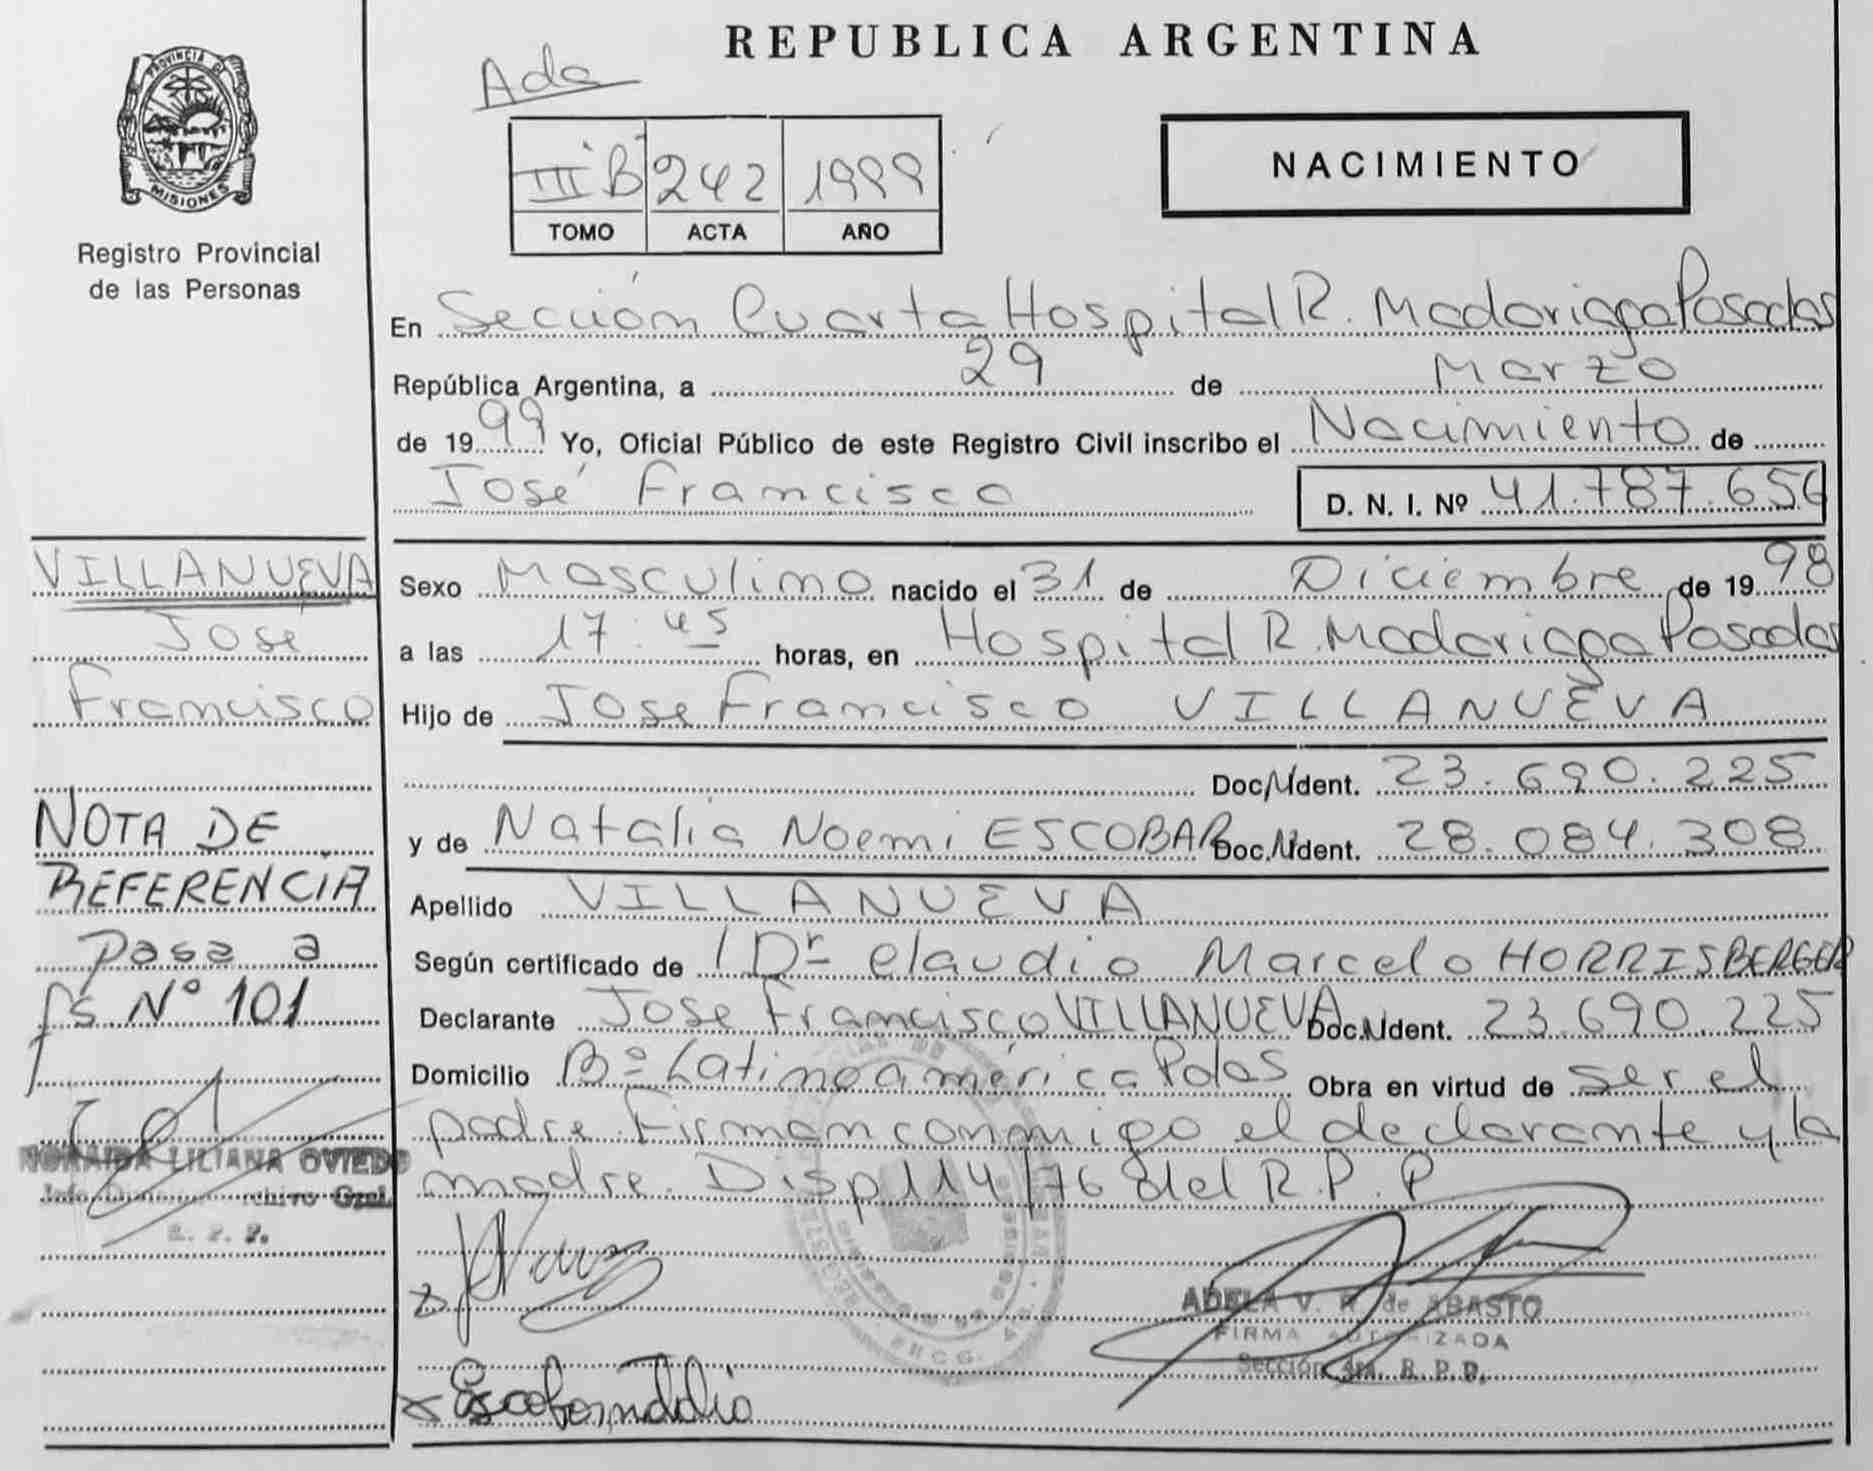 REPUBLICA ARGENTINA
Ada
PROVINCIA DE
MISIONES
Registro Provincial
de las Personas
III B 242 1999
TOMO ACTA AÑO
NACIMIENTO
En Sección Cuarta Hospital R. Madariaga Posadas
República Argentina, a 29 de Marzo
de 1999 Yo, Oficial Público de este Registro Civil inscribo el Nacimiento de
José Francisco D. N. I. Nº 41.787.656
VILLANUEVA
José
Francisco
Sexo Masculino nacido el 31 de Diciembre de 1998
a las 17:45 horas, en Hospital R. Madariaga Posadas
Hijo de Jose Francisco VILLANUEVA
Doc. Ident. 23.690.225
y de Natalia Noemi ESCOBAR Doc. Ident. 28.084.308
Apellido VILLANUEVA
Según certificado de Dr Claudio Marcelo HORRISBERGER
Declarante Jose Francisco VILLANUEVA Doc. Ident. 23.690.225
Domicilio Bº Latinoamérica Pdas Obra en virtud de ser el
padre. Firman conmigo el declarante y la
madre. Disp 114/76 del R.P.P.
NOTA DE
REFERENCIA
Pasa a
fs Nº 101
NORAIDA LILIANA OVIEDO
R. P. P.
ADELA V. R. de ABASTO
FIRMA AUTORIZADA
Sección 4ta. R. P. P.